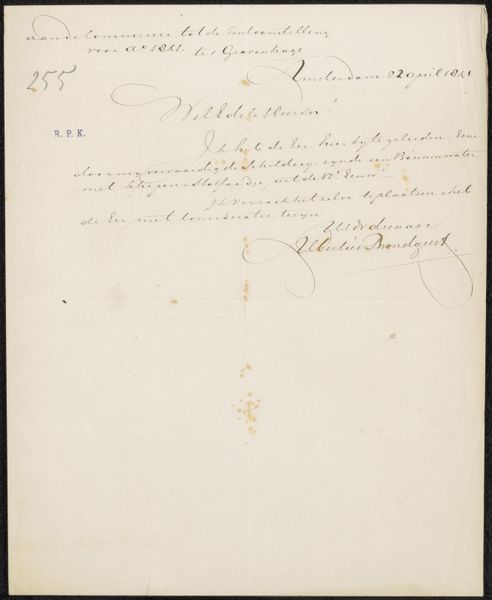 aan de Commissie tot de Tentoonstelling
voor Ao 1841. te s Gravenhage.
255
Amsterdam 22 april 1841
WelEdele Heeren!
R. P. K.
Ik heb de Eer hier by te geleiden. Eene
door my vervaardigde Schildery, zynde een Binnenwater
met Schepen en Stoffaadje, uit de 17e Eeuw.
Ik verzoek het zelve te plaatsen & heb
de Eer met Consideratie te zyn
UEd dienaar
Albertus Brondgeest.